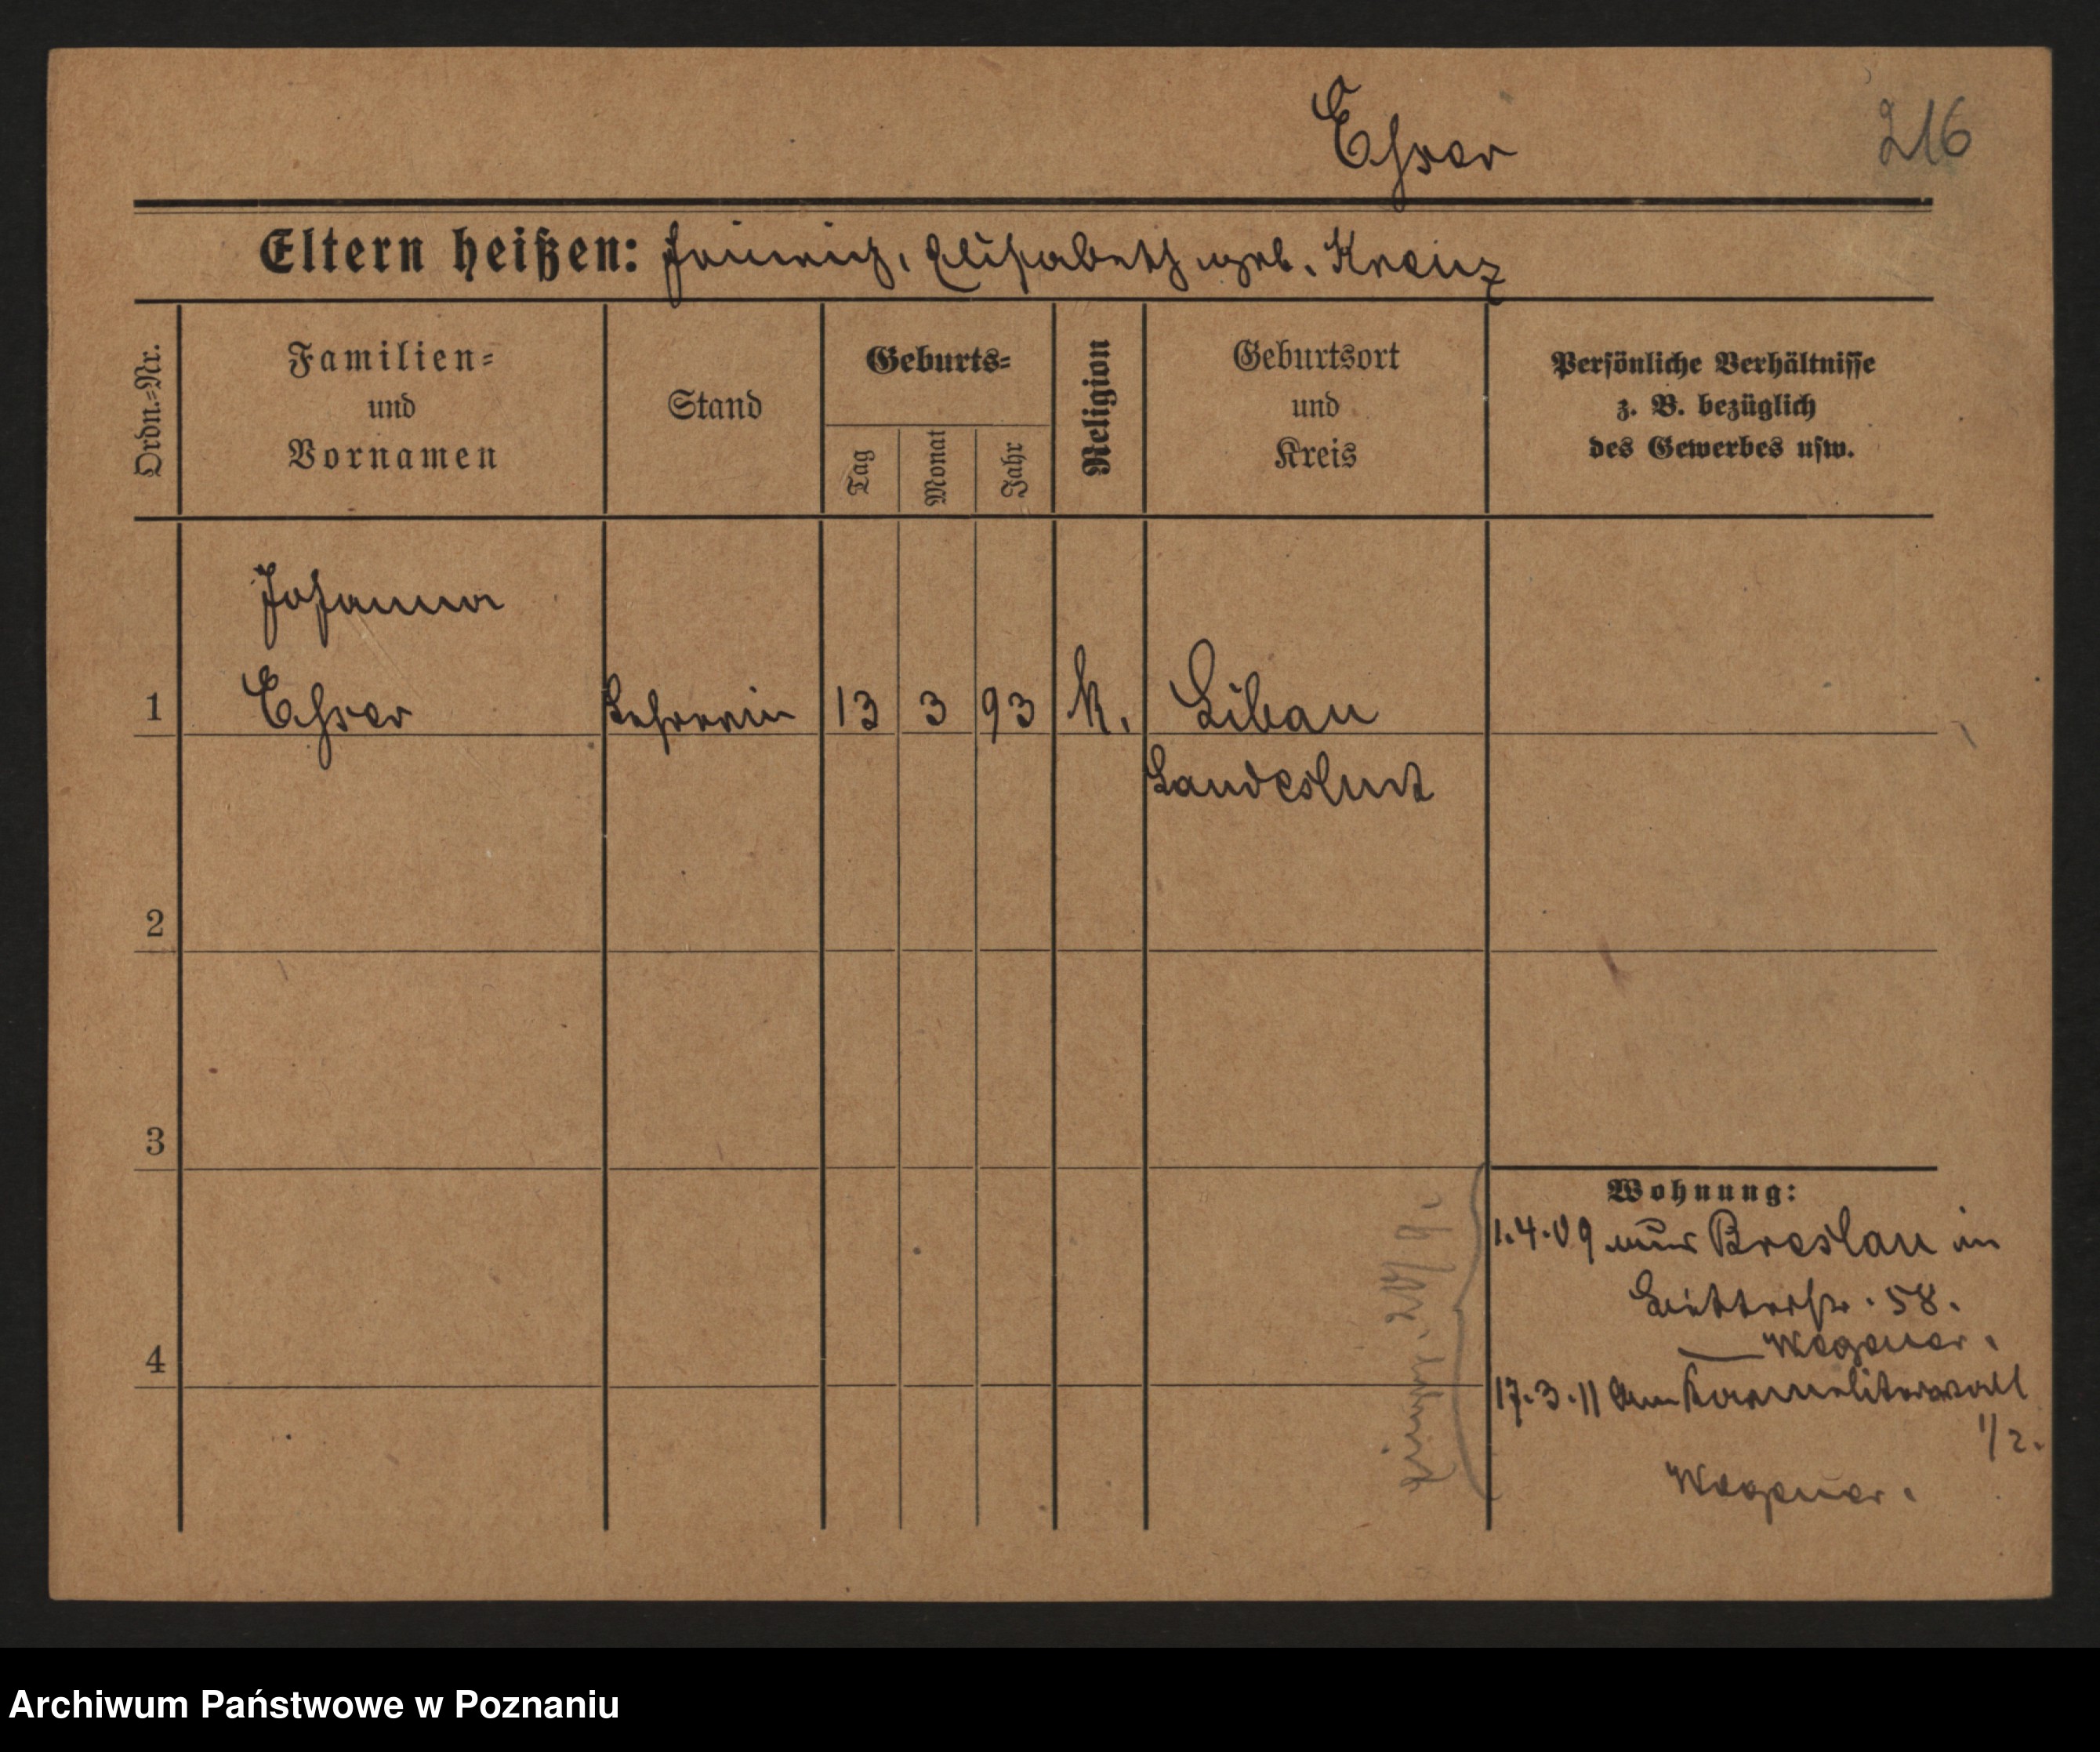 Esser
216
Eltern heißen: Heinrich, Elisabeth geb. Krenz
Ordn.=Nr.
Familien=
und
Vornamen
Stand
Geburts=
Tag
Monat
Jahr
Religion
Geburtsort
und
Kreis
Persönliche Verhältnisse
z. B. bezüglich
des Gewerbes usw.
Johanna
1 Esser Lehrerin 13 3 93 k. Libau
Landeshut
2
3
4
Wohnung:
1.4.09 aus Breslau in
58.
Wegener.
17.3.11 Am Karmeliterwall
1/2.
Wegener.
Archiwum Państwowe w Poznaniu